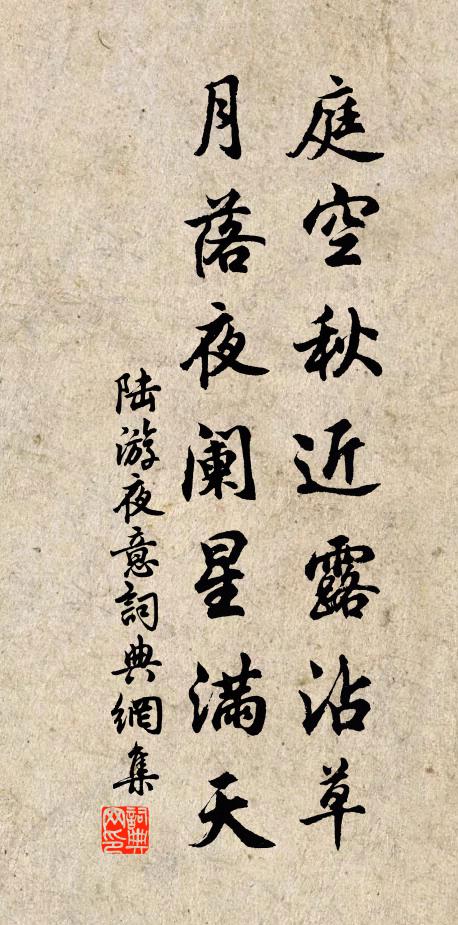 庭空秋近露沾草
月落夜阑星满天
陆游夜意詞典網集
詞典
网印